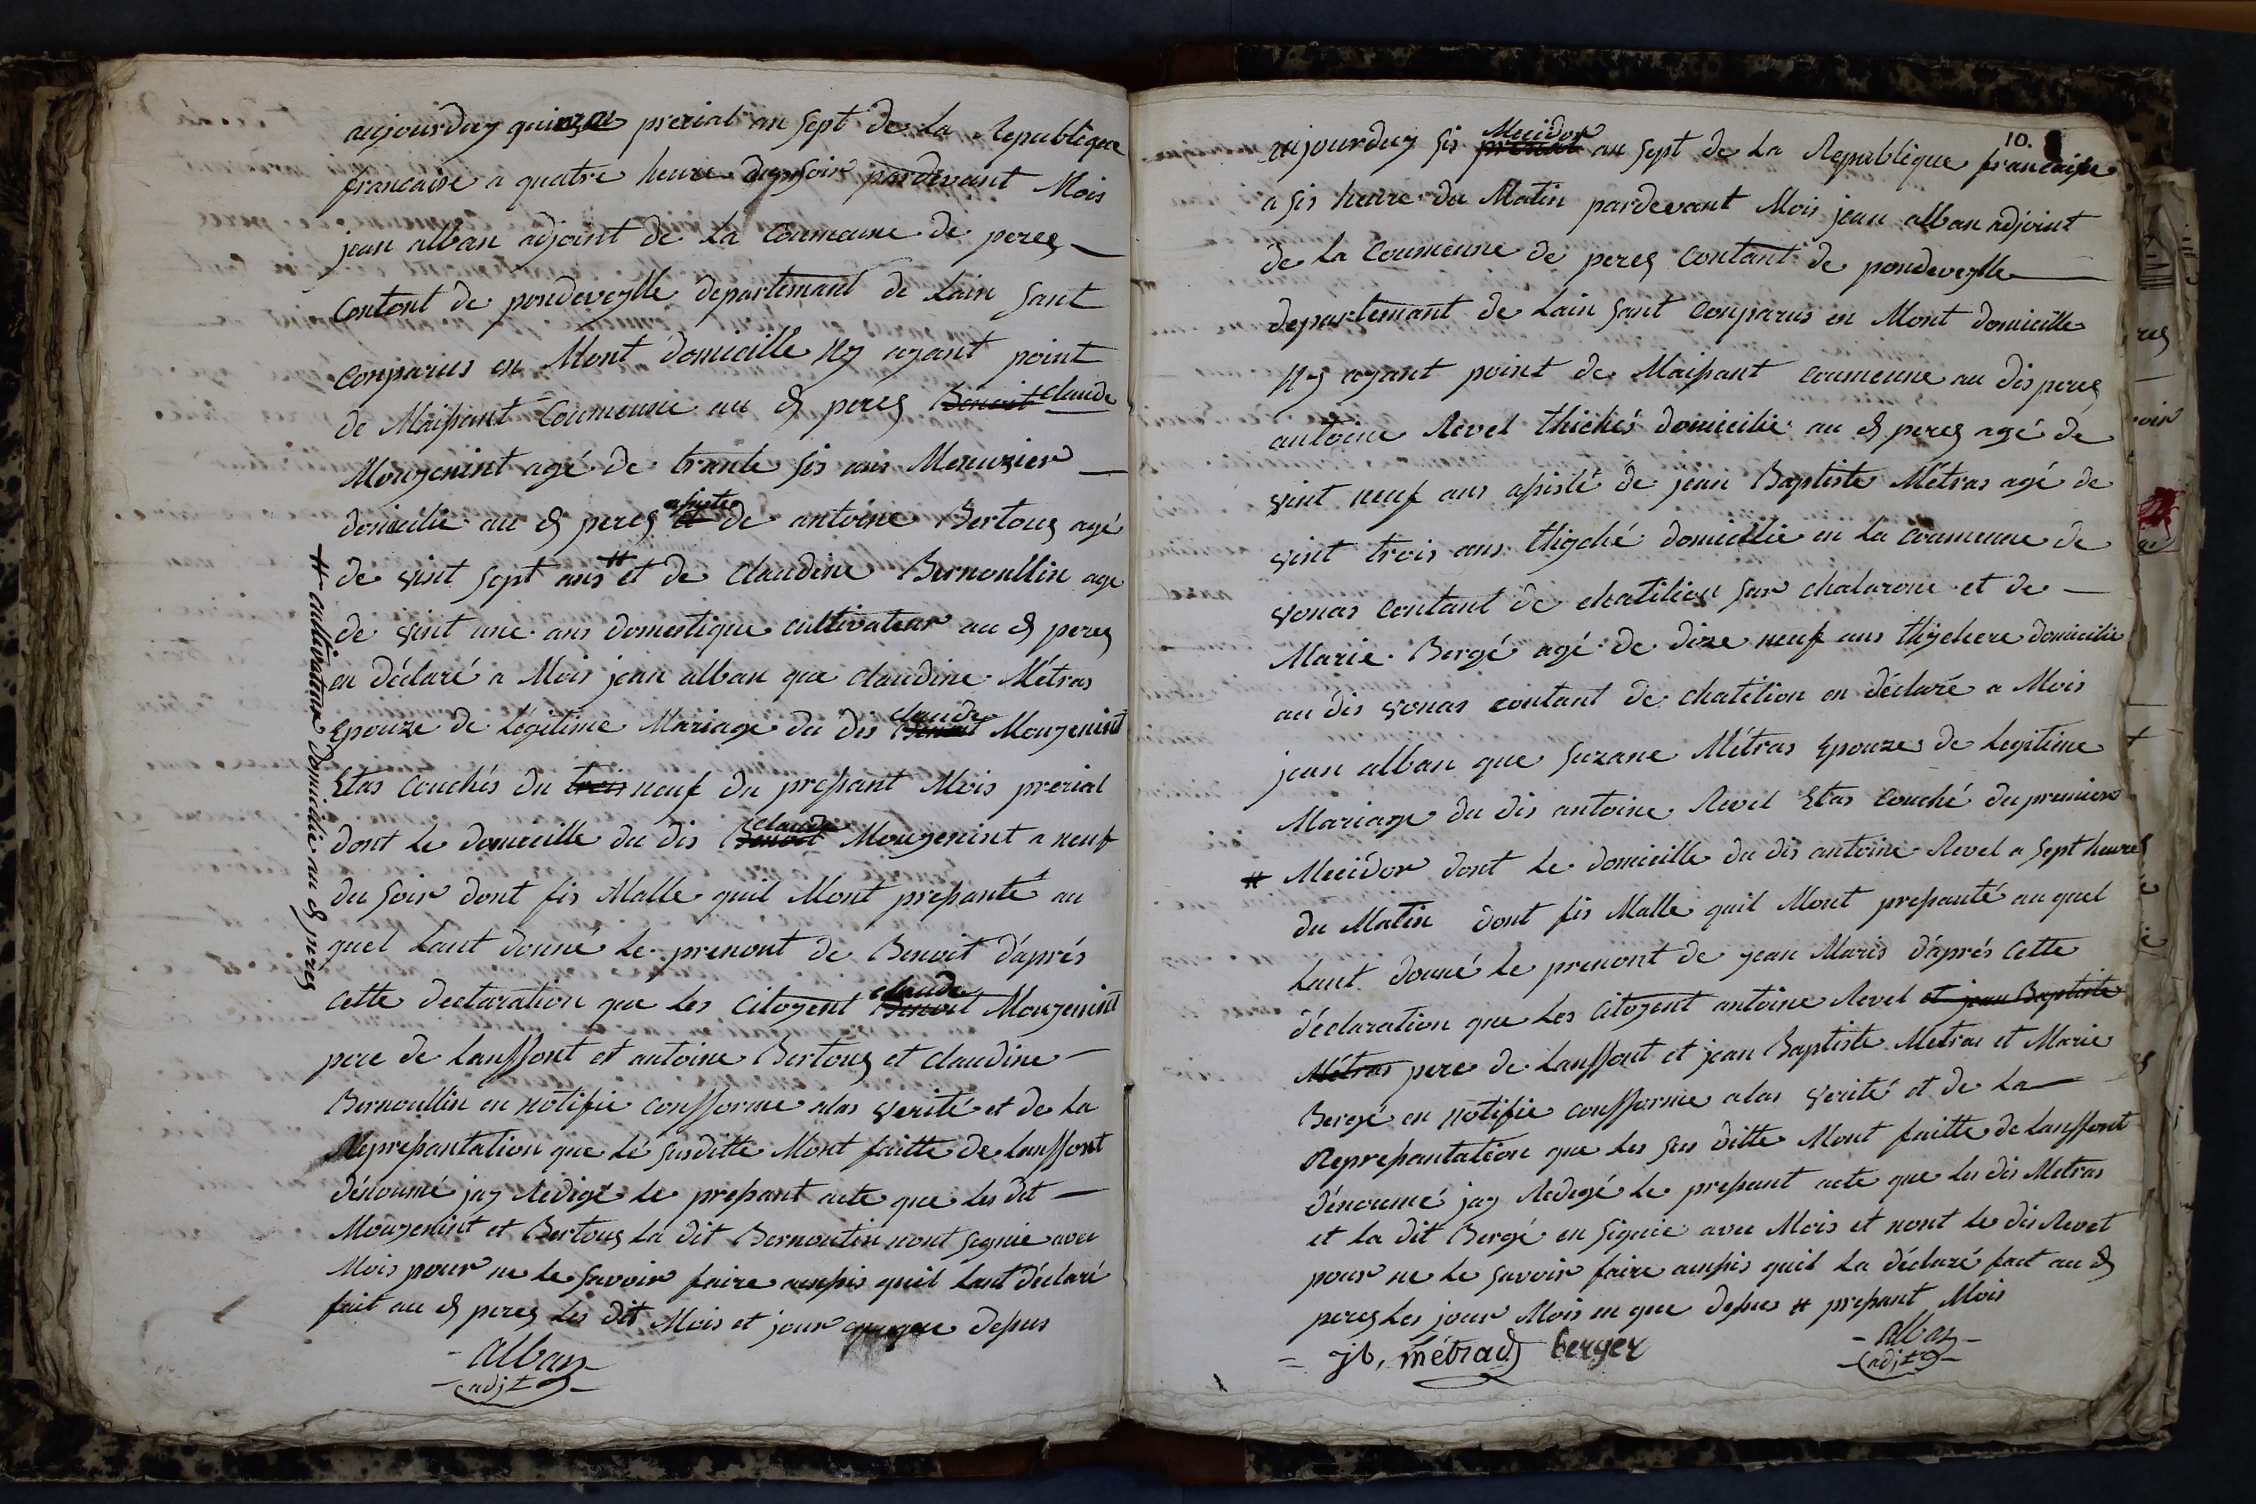 aujourduy quinze prerial an sept de la Republique
francaise a quatre heure du soir pardevant Mois
jean alban adjoint de la Coumeune de perez
Contont de pondeveylle departemant de Lain sant
Conparus en Mont domicille Ny ayant point
de Maissant Coumeune au d perez Benoit Claude
Mouzenint agé de trante sis ans Menuzier
domicilie au d perez et assiste de antoine Bertous agé
de vint sept ans # et de Claudine Bernoullin age
de vint une ans domestique cultivateur au d perez
en déclaré a Mois jean alban que Claudine Métras
Epouze de légitime Mariage du dis Benoit claude Mouzenint
Etas Couchés du trois neuf du pressant Mois prerial
dont le domicille du dis Benoit claude Mouzenint a neuf
du soir dont fis Malle quil Mont pressanté au
quel Lant donné le prenont de Benoit d'aprés
cette declaration que les Citoyent Benoit claude Mouzenint
pere de Lanssont et antoine Bertous et claudine
Bernoullin en notifie conssorme alas verité et de la
Represantation que lé susditte Mont faitte de lanssont
dénoumé jay Redigé le pressant acte que les dit
Mouzenint et Bertous La dit Bernoulin nont signie avec
Mois pour ne le savoir faire ainssis quil Lant déclaré
fait au d perez les dit Mois et jour que depus
alban
adjt
# cultivateur domicilie au d perez
10.
aujourduy sis prerial Mecidor an sept de la Republique francaisse
a sis heure du Matin pardevant Mois jean alban adjoint
de la Coumeune de perez Contant de pondeveylle
departemant de Lain sant Conparus en Mont domicille
Ny ayant point de Maissant coumeune au dis perez
antoine Revel thichés domicilie au d perez agé de
vint neuf ans assisté de jean Baptiste Métras agé de
vint trois ans thigché domicilie en la Coumeune de
vonas contant de chatilion sur chalarone et de
Marie Bergé agé de dize neuf ans thijchere domicilie
au dis vonas contant de chatilion en déclaré a Mois
jean alban que suzane Métras Epouze de legitime
Mariage du dis antoine Revel Etas Couché du premier
# Mecidor dont le domicille du dis antoine Revel a sept heures
du Matin dont fis Malle quil Mont pressanté au quel
Lant donné le prenont de jean Maris d'aprés Cette
déclaration que les Citoyent antoine Revel et jean Baptiste
Métras pere de Lanssont et jean Baptiste Metras et Marie
Bergé en notifie conssorme alas verité et de la
Represantation que les sus ditte Mont faitte de Lanssont
dénoumé jay Redegé le pressant acte que les dis Metras
et la dit Bergé en signié avec Mois et nont le dis Revel
pour ne le savoir faire ainssis quil La déclaré fait au d
perez les jour Mois en que depus # pressant Mois
jb, métrad berger
alban
adjt